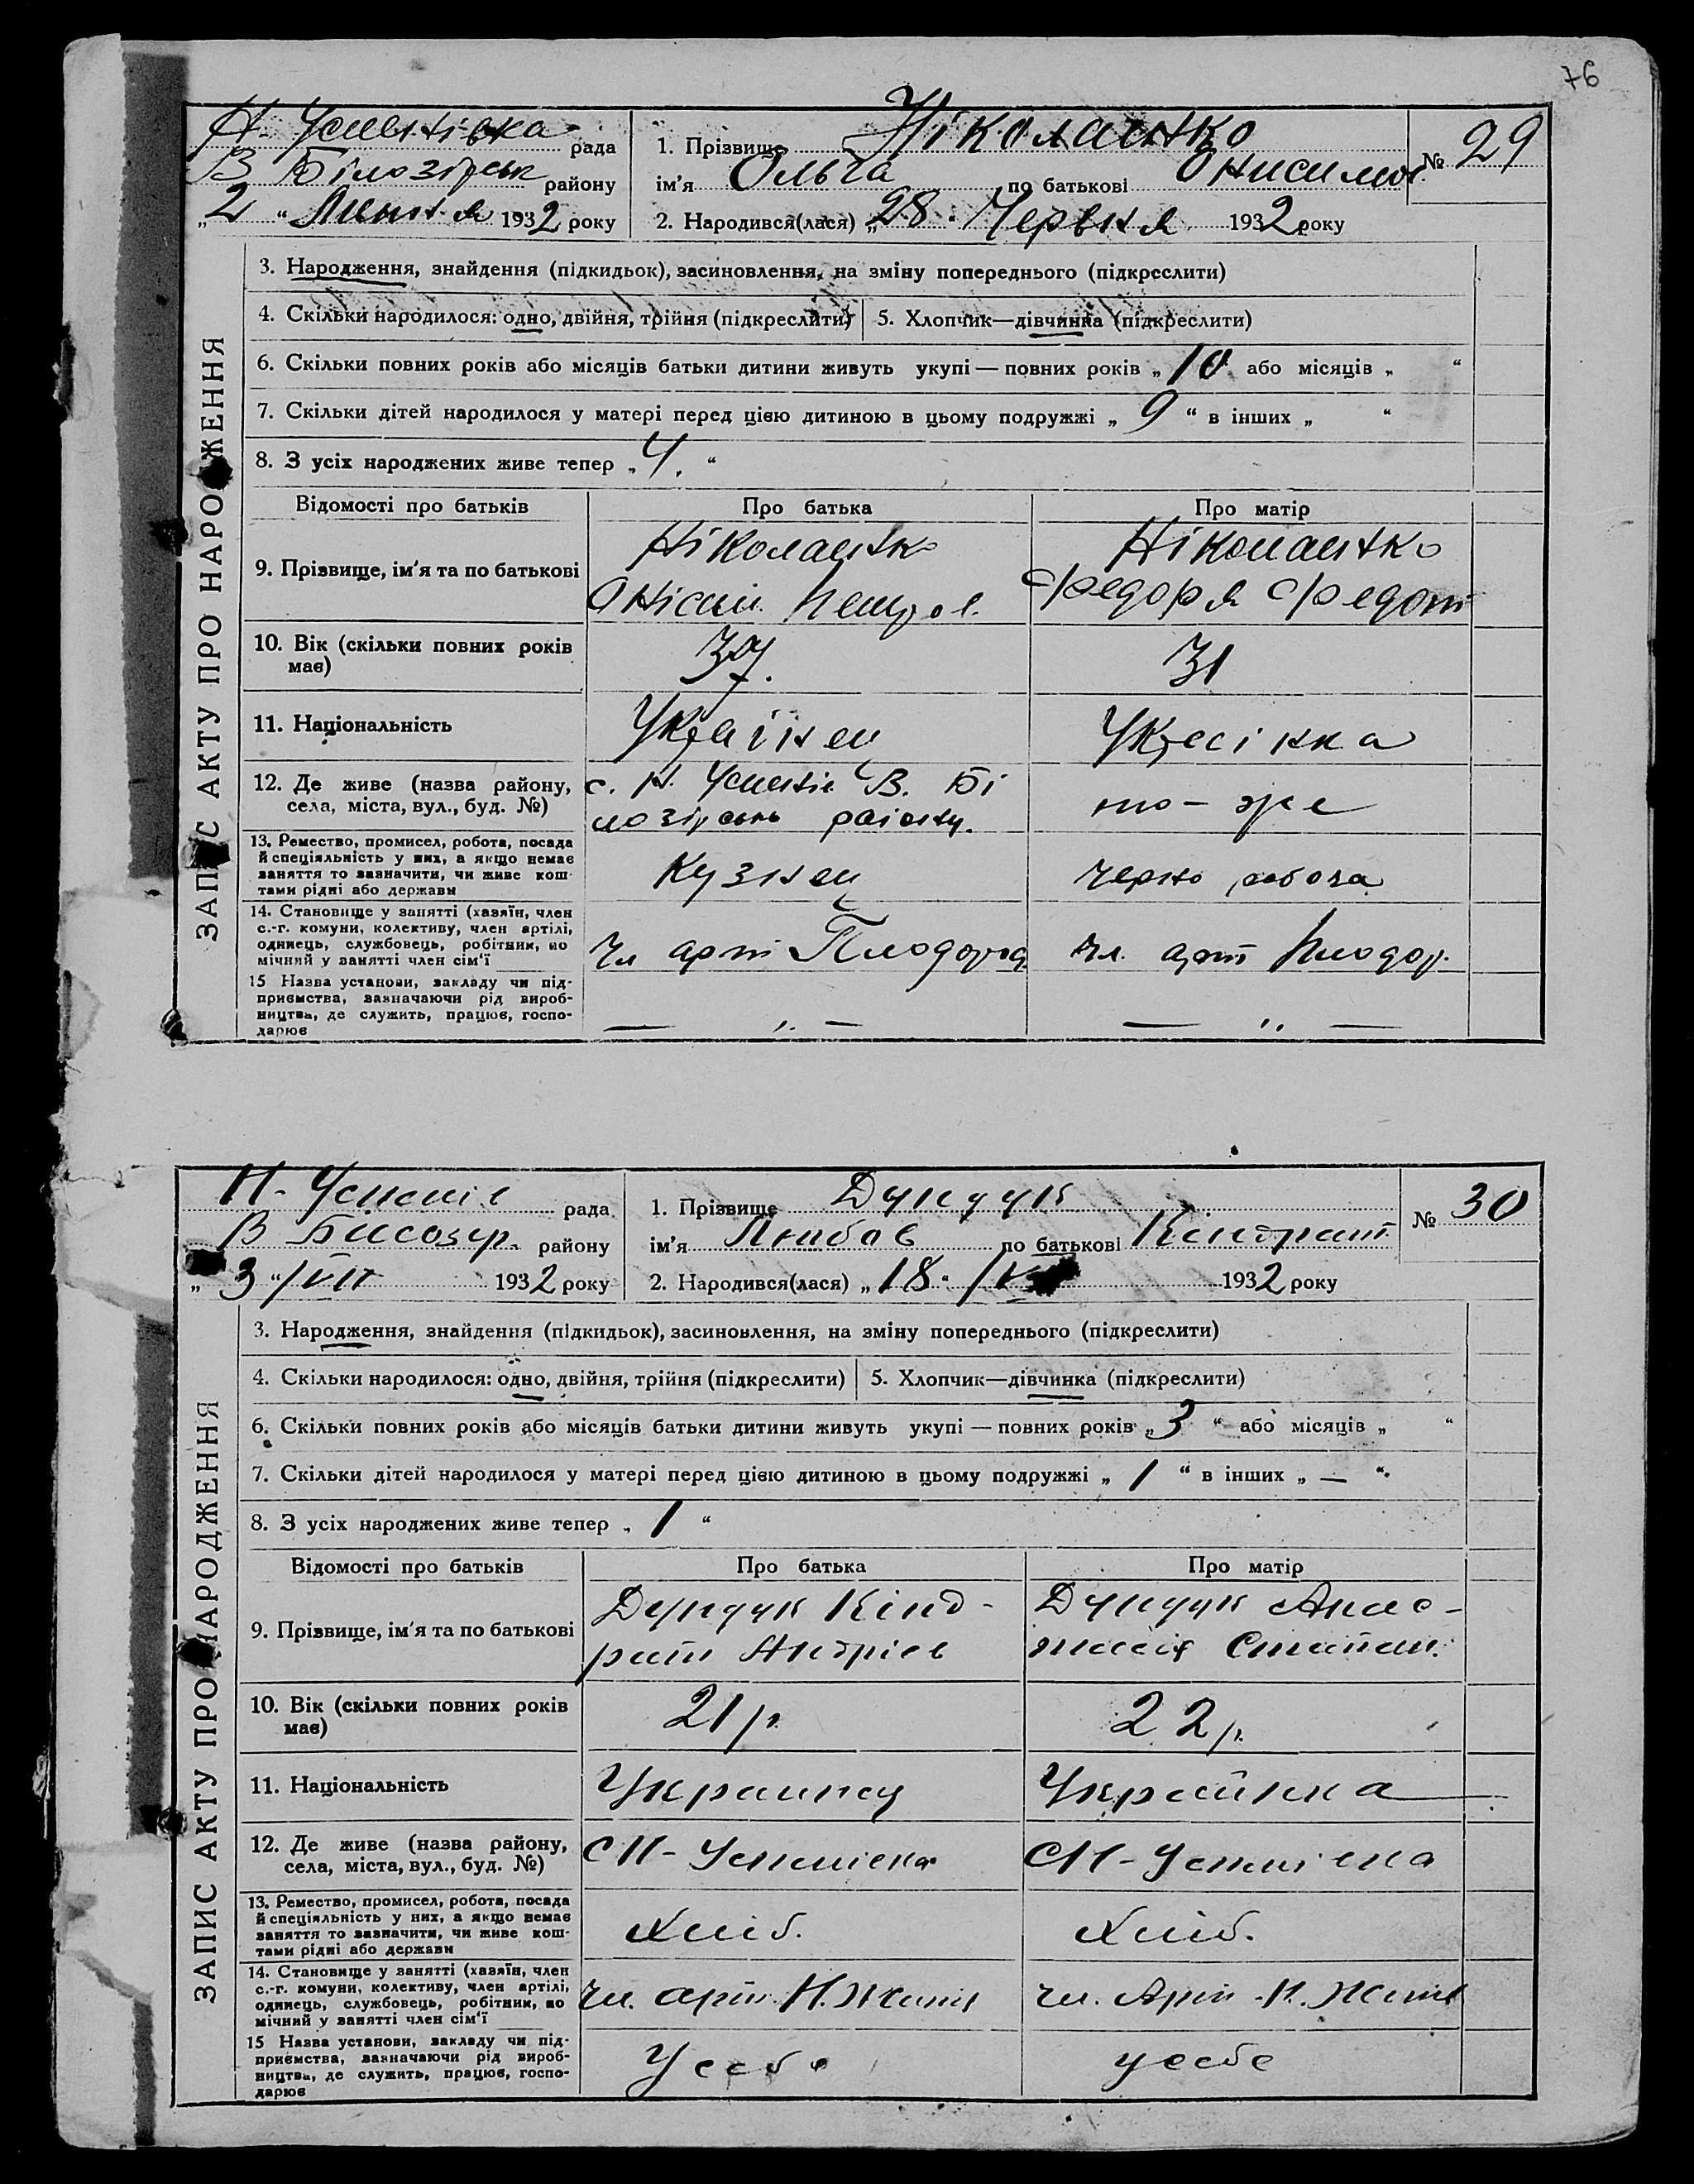 76
Н. Успенівка рада
В Білозірськ району
„ 2 “ Липня 1932 року
1. Прізвище Ніколаєнко
ім'я Ольга по батькові Онисимов.
2. Народився(лася) „ 28 “ Червня 1932 року
№ 29
ЗАПИС АКТУ ПРО НАРОДЖЕННЯ
3. Народження, знайдення (підкидьок), засиновлення, на зміну попереднього (підкреслити)
4. Скільки народилося: одно, двійня, трійня (підкреслити) 5. Хлопчик—дівчинка (підкреслити)
6. Скільки повних років або місяців батьки дитини живуть укупі — повних років „ 10 “ або місяців „ “
7. Скільки дітей народилося у матері перед цією дитиною в цьому подружжі „ 9 “ в інших „ “
8. З усіх народжених живе тепер „ 4. “
Відомості про батьків Про батька Про матір
9. Прізвище, ім'я та по батькові
Ніколаєнко
Онісим Петров.
Ніколаєнко
Федоря Федот
10. Вік (скільки повних років має) 37. 31
11. Національність Українец Українка
12. Де живе (назва району, села, міста, вул., буд. №)
с. Н. Успенів В. Бі
лозірськ району.
то-же
13. Ремество, промисел, робота, посада
й спеціяльність у них, а якщо немає
заняття то зазначити, чи живе кош-
тами рідні або держави
Кузнец
черно робоча
14. Становище у занятті (хазяїн, член
с.-г. комуни, колективу, член артілі,
одинець, службовець, робітник, по
мічний у занятті член сім'ї
Чл арт Плодород
Чл. арт Плодор.
15 Назва установи, закладу чи під-
приємства, зазначаючи рід вироб-
ництва, де служить, працює, госпо-
дарює
— „ — — „ —
Н-Успенів рада
В Білозур. району
„ 3 “ /VII 1932 року
1. Прізвище Дундук
ім'я Любов по батькові Кіндрат.
2. Народився(лася) „ 18 “ 1932 року
№ 30
ЗАПИС АКТУ ПРО НАРОДЖЕННЯ
3. Народження, знайдення (підкидьок), засиновлення, на зміну попереднього (підкреслити)
4. Скільки народилося: одно, двійня, трійня (підкреслити) 5. Хлопчик—дівчинка (підкреслити)
6. Скільки повних років або місяців батьки дитини живуть укупі — повних років „ 3 “ або місяців „ “
7. Скільки дітей народилося у матері перед цією дитиною в цьому подружжі „ 1 “ в інших „ — “
8. З усіх народжених живе тепер „ 1 “
Відомості про батьків Про батька Про матір
9. Прізвище, ім'я та по батькові
Дундук Кінд-
рат Андріев
Дундук Анас-
тасія Степан.
10. Вік (скільки повних років має) 21 р. 22 р.
11. Національність Украинец Українка
12. Де живе (назва району, села, міста, вул., буд. №)
С Н-Успенівка
С Н-Успенівка
13. Ремество, промисел, робота, посада
й спеціяльність у них, а якщо немає
заняття то зазначити, чи живе кош-
тами рідні або держави
Хліб.
Хліб.
14. Становище у занятті (хазяїн, член
с.-г. комуни, колективу, член артілі,
одинець, службовець, робітник, по
мічний у занятті член сім'ї
Чл. арт. Н. Життя
Чл. Арт. Н. Життя
15 Назва установи, закладу чи під-
приємства, зазначаючи рід вироб-
ництва, де служить, працює, госпо-
дарює
У себе
у себе